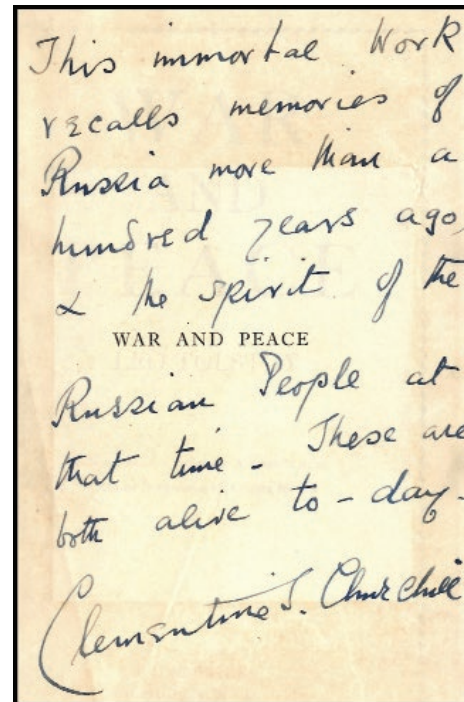 This immortal Work
recalls memories of
Russia more than a
hundred years ago,
& the spirit of the
WAR AND PEACE
Russian People at
that time - These are
both alive to-day-
Clementine S. Churchill